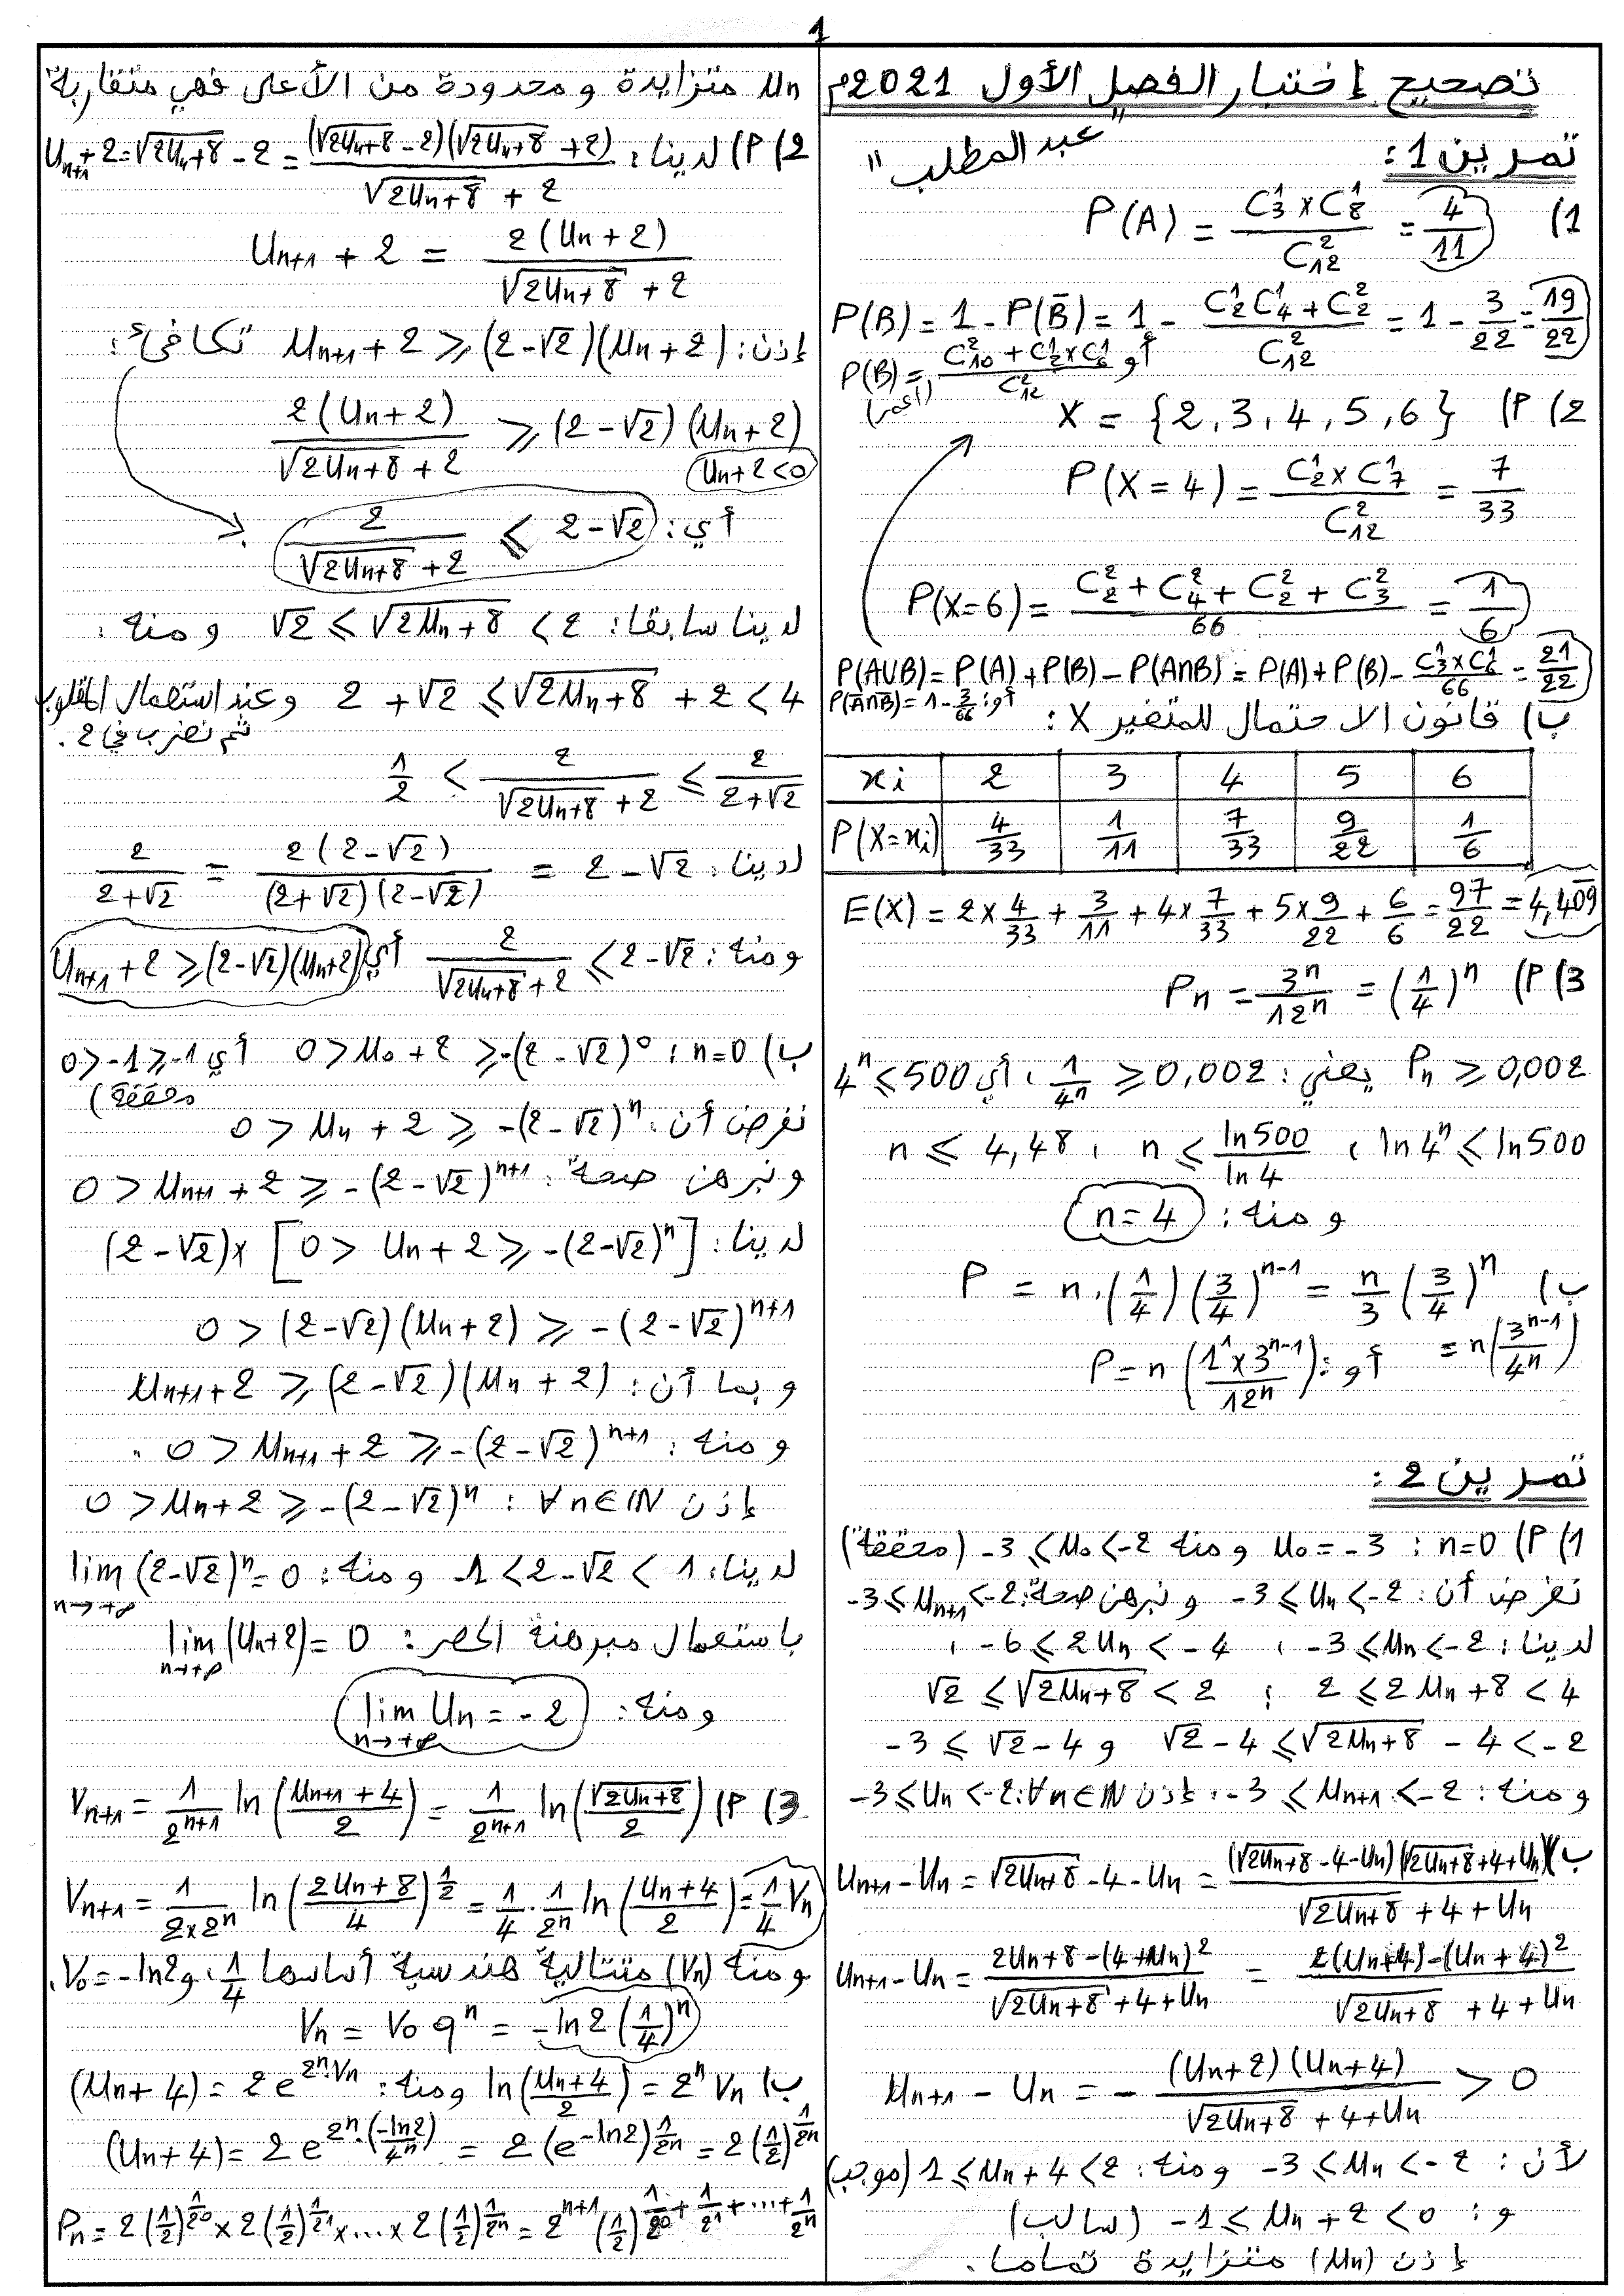 1
تصحيح إختبار الفصل الأول 2021م
"عبد المطلب"
تمرين 1:
1) P(A) = \frac{C_3^1 × C_8^1}{C_{12}^2} = \frac{4}{11}
P(B) = 1 - P(\bar{B}) = 1 - \frac{C_2^1 C_4^1 + C_2^2}{C_{12}^2} = 1 - \frac{3}{22} = \frac{19}{22}
أو P(B) = \frac{C_{10}^2 + C_2^1 × C_6^1}{C_{12}^2}
2) P) X = {2, 3, 4, 5, 6}
P(X = 4) = \frac{C_2^1 × C_7^1}{C_{12}^2} = \frac{7}{33}
P(X=6) = \frac{C_2^2 + C_4^2 + C_2^2 + C_3^2}{66} = \frac{1}{6}
P(A∪B) = P(A) + P(B) - P(A∩B) = P(A) + P(B) - \frac{C_3^1 × C_6^1}{66} = \frac{21}{22}
أو: P(\bar{A}∩\bar{B}) = 1 - \frac{3}{66}
ب) قانون الاحتمال للمتغير X:
xi 2 3 4 5 6
P(X=xi) \frac{4}{33} \frac{1}{11} \frac{7}{33} \frac{9}{22} \frac{1}{6}
E(X) = 2×\frac{4}{33} + \frac{3}{11} + 4×\frac{7}{33} + 5×\frac{9}{22} + \frac{6}{6} = \frac{97}{22} = 4,409
3) P) Pn = \frac{3^n}{12^n} = (\frac{1}{4})^n
Pn ⩾ 0,002 يعني: \frac{1}{4^n} ⩾ 0,002، أي 4^n ⩽ 500
ln 4^n ⩽ ln 500، n ⩽ \frac{ln 500}{ln 4}، n ⩽ 4,48
ومنه: n = 4
ب) P = n.(\frac{1}{4})(\frac{3}{4})^{n-1} = \frac{n}{3}(\frac{3}{4})^n
= n(\frac{3^{n-1}}{4^n}) أو: P = n(\frac{1^1 × 3^{n-1}}{12^n})
تمرين 2:
1) P) n=0: u0 = -3 ومنه -3 ⩽ u0 < -2 (محققة)
نفرض أن: -3 ⩽ Un < -2 ونبرهن صحة: -3 ⩽ Un+1 < -2
لدينا: -3 ⩽ Un < -2، -6 ⩽ 2Un < -4،
2 ⩽ 2Un + 8 < 4؛ √2 ⩽ √(2Un+8) < 2
√2 - 4 ⩽ √(2Un+8) - 4 < -2 و -3 ⩽ √2 - 4
ومنه: -3 ⩽ Un+1 < -2، إذن ∀n∈IN: -3 ⩽ Un < -2
ب) Un+1 - Un = √(2Un+8) - 4 - Un = \frac{(√(2Un+8) - 4 - Un)(√(2Un+8) + 4 + Un)}{√(2Un+8) + 4 + Un}
Un+1 - Un = \frac{2Un + 8 - (4 + Un)^2}{√(2Un+8) + 4 + Un} = \frac{2(Un+4) - (Un+4)^2}{√(2Un+8) + 4 + Un}
Un+1 - Un = - \frac{(Un+2)(Un+4)}{√(2Un+8) + 4 + Un} > 0
لأن: -3 ⩽ Un < -2 ومنه: 1 ⩽ Un + 4 < 2 (موجب)
و: -1 ⩽ Un + 2 < 0 (سالب)
إذن (Un) متزايدة تماما.
Un متزايدة ومحدودة من الأعلى فهي متقاربة
2) P) لدينا: Un+1 + 2 = √(2Un+8) - 2 = \frac{(√(2Un+8) - 2)(√(2Un+8) + 2)}{√(2Un+8) + 2}
Un+1 + 2 = \frac{2(Un+2)}{√(2Un+8) + 2}
إذن: Un+1 + 2 ⩾ (2-√2)(Un+2) تكافئ:
\frac{2(Un+2)}{√(2Un+8) + 2} ⩾ (2-√2)(Un+2)
Un+2 < 0
أي: \frac{2}{√(2Un+8) + 2} ⩽ 2-√2
لدينا سابقا: √2 ⩽ √(2Un+8) < 2 ومنه:
2 + √2 ⩽ √(2Un+8) + 2 < 4 وعند استعمال المقلوب
ثم نضرب في 2.
\frac{1}{2} < \frac{2}{√(2Un+8) + 2} ⩽ \frac{2}{2+√2}
لدينا: \frac{2}{2+√2} = \frac{2(2-√2)}{(2+√2)(2-√2)} = 2 - √2
ومنه: \frac{2}{√(2Un+8) + 2} ⩽ 2-√2 أي Un+1 + 2 ⩾ (2-√2)(Un+2)
ب) n=0: 0 > U0 + 2 ⩾ -(2-√2)^0 أي 0 > -1 ⩾ -1
(محققة)
نفرض أن: 0 > Un + 2 ⩾ -(2-√2)^n
ونبرهن صحة: 0 > Un+1 + 2 ⩾ -(2-√2)^{n+1}
لدينا: (2-√2) × [0 > Un + 2 ⩾ -(2-√2)^n]
0 > (2-√2)(Un+2) ⩾ -(2-√2)^{n+1}
وبما أن: Un+1 + 2 ⩾ (2-√2)(Un+2)
ومنه: 0 > Un+1 + 2 ⩾ -(2-√2)^{n+1}.
إذن ∀n∈IN: 0 > Un + 2 ⩾ -(2-√2)^n
لدينا: -1 < 2-√2 < 1 ومنه: lim_{n→+∞} (2-√2)^n = 0
باستعمال مبرهنة الحصر: lim_{n→+∞} (Un+2) = 0
ومنه: lim_{n→+∞} Un = -2
3) P) Vn+1 = \frac{1}{2^{n+1}} ln(\frac{Un+1 + 4}{2}) = \frac{1}{2^{n+1}} ln(\frac{√(2Un+8)}{2})
Vn+1 = \frac{1}{2×2^n} ln(\frac{2Un+8}{4})^{\frac{1}{2}} = \frac{1}{4}.\frac{1}{2^n} ln(\frac{Un+4}{2}) = \frac{1}{4} Vn
ومنه (Vn) متتالية هندسية أساسها \frac{1}{4}، و V0 = -ln2.
Vn = V0 q^n = -ln2 (\frac{1}{4})^n
ب) ln(\frac{Un+4}{2}) = 2^n Vn ومنه: (Un+4) = 2e^{2^n.Vn}
(Un+4) = 2e^{2^n.(\frac{-ln2}{4^n})} = 2(e^{-ln2})^{\frac{1}{2^n}} = 2(\frac{1}{2})^{\frac{1}{2^n}}
Pn = 2(\frac{1}{2})^{\frac{1}{2^0}} × 2(\frac{1}{2})^{\frac{1}{2^1}} × ... × 2(\frac{1}{2})^{\frac{1}{2^n}} = 2^{n+1}(\frac{1}{2})^{\frac{1}{2^0} + \frac{1}{2^1} + ... + \frac{1}{2^n}}